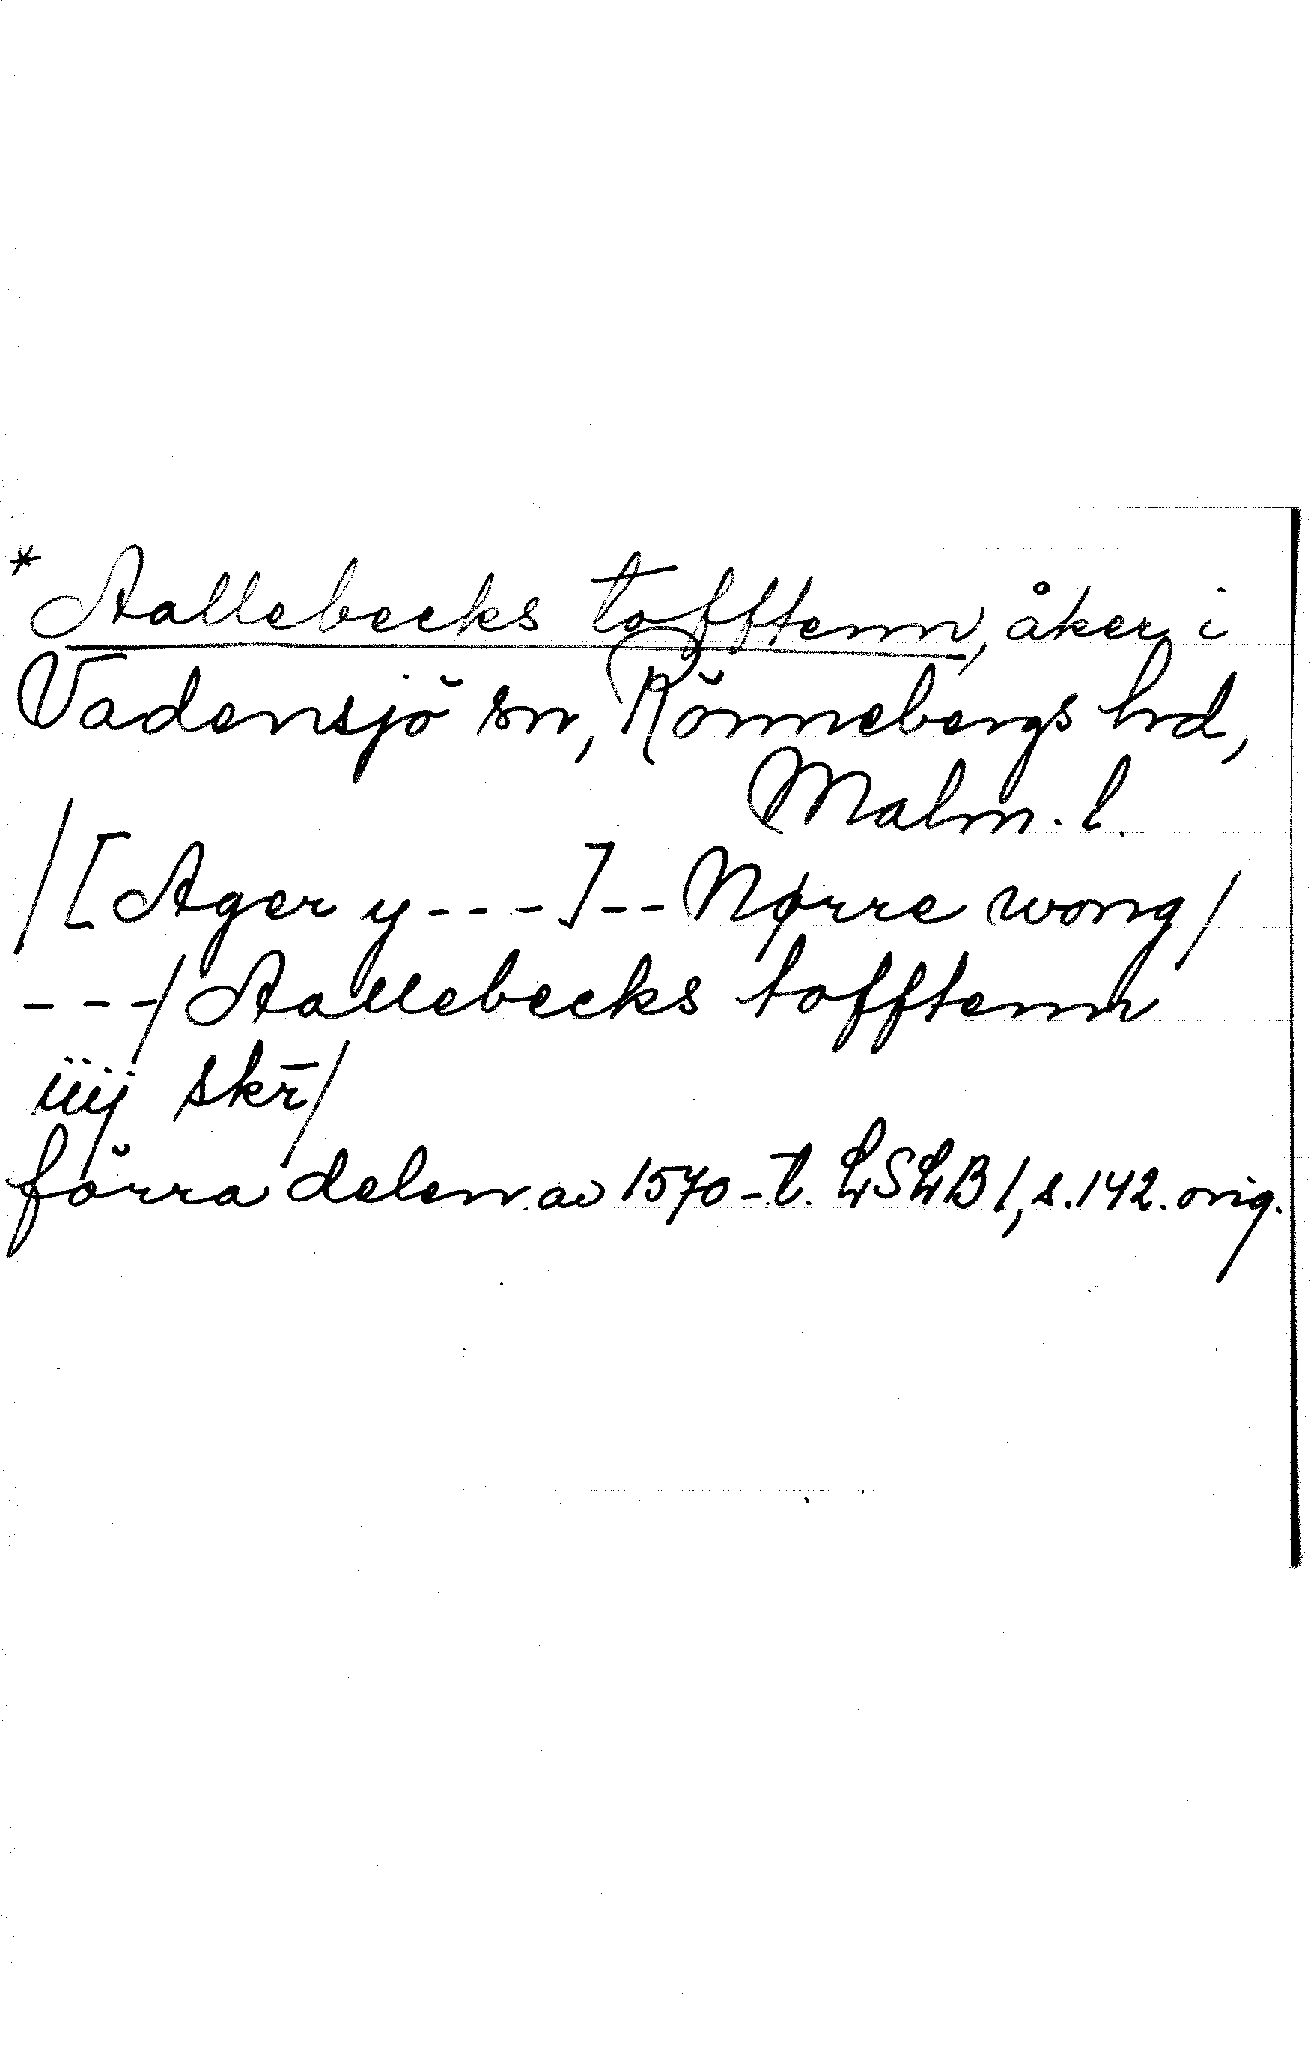 * Aallebecks tofftenn, åker i
Vadensjö sn, Rönnebergs hrd,
Malm. l.
/[Ager y---]--Nørre wong/
---/Aallebecks tofftenn
iiij skr̄/
förra delen av 1570-t. LSLB I, s.142. orig.